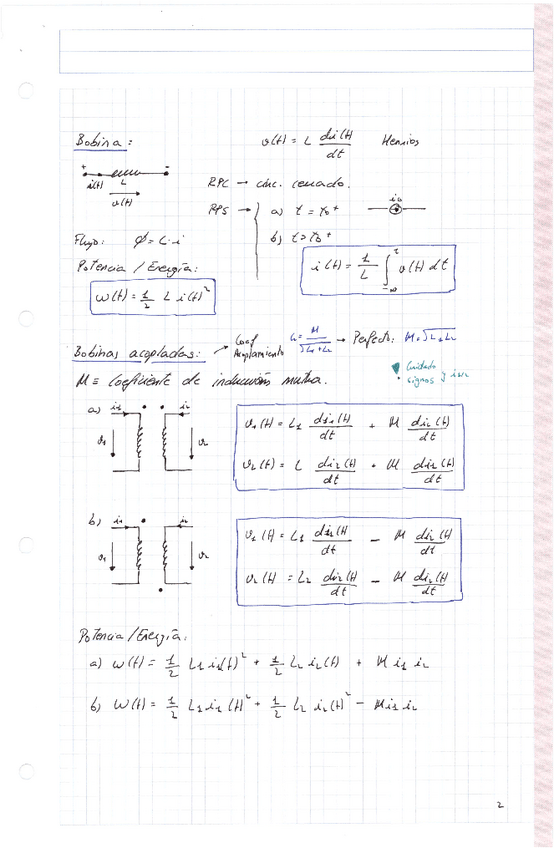 Bobina:
v(t) = L di(t)/dt Henrios
+ -
i(t) L
v(t)
RPC → circ. cerrado.
RPS → a) t = t0+ i0
b) t > t0+
Flujo: φ = L·i
i(t) = 1/L ∫_{-∞}^{t} v(t) dt
Potencia / Energía:
w(t) = 1/2 L i(t)²
Bobinas acopladas: → Coef Acoplamiento k = M/√L1+L2 → Perfecto: M = √L1+L2
M ≡ Coeficiente de inducción mutua.
Cuidado
signos
a) i1 i2
v1 v2
v1(t) = L1 di1(t)/dt + M di2(t)/dt
v2(t) = L di2(t)/dt + M di2(t)/dt
b) i1 i2
v1 v2
v1(t) = L1 di1(t)/dt - M di2(t)/dt
v2(t) = L2 di2(t)/dt - M di2(t)/dt
Potencia / Energía:
a) w(t) = 1/2 L1 i1(t)² + 1/2 L2 i2(t) + M i1 i2
b) w(t) = 1/2 L1 i1(t)² + 1/2 L2 i2(t)² - M i1 i2
2